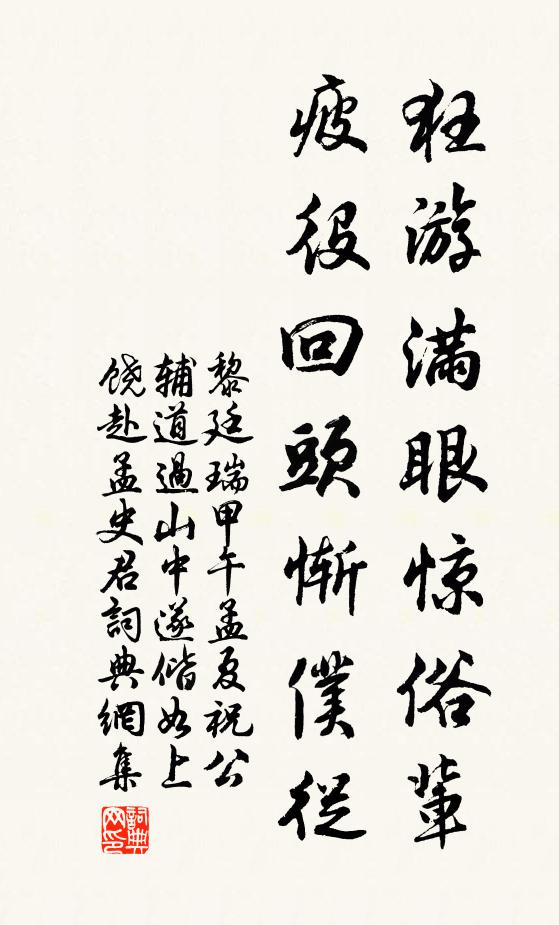 狂游滿眼惊俗輩
疲役回頭慚僕從
黎廷瑞甲午孟夏祝公
辅道過山中遂偕如上
饶赴孟史君詞典網集
詞典网印